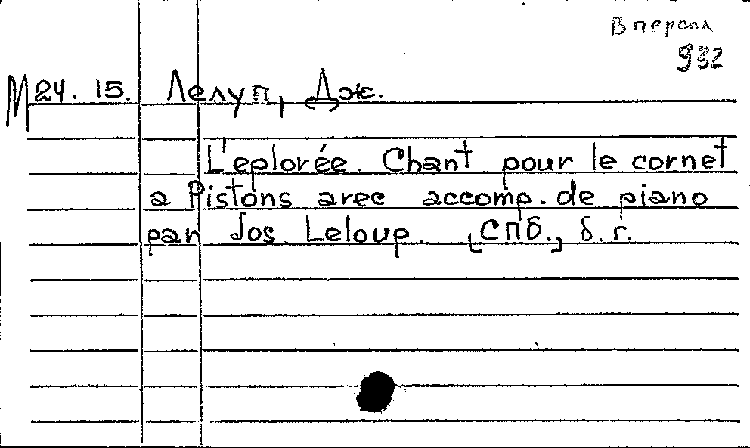 В перепл
932
М 24. 15. Лелуп, Дж.
L'eplorée. Chant pour le cornet
a Pistons avec accomp. de piano
par Jos. Leloup. [СПб.], б. г.